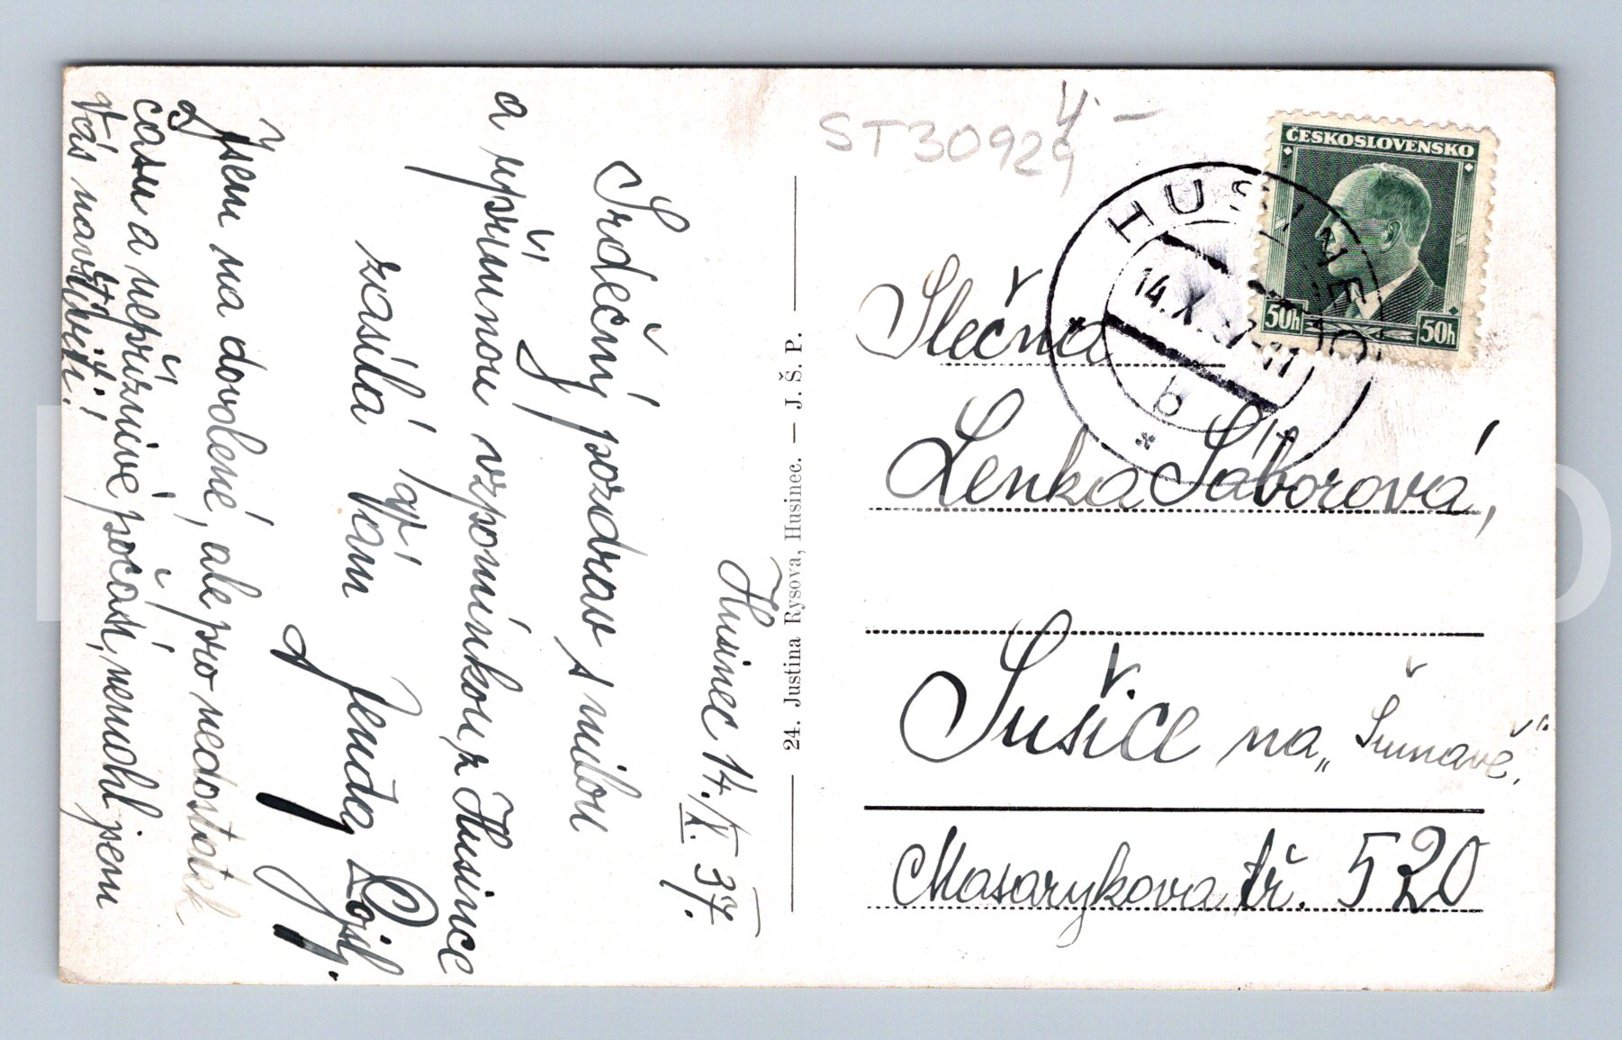 Husinec 14./X. 37.
Srdečný pozdrav s milou
a upřímnou vzpomínkou z Husince
zasílá Vám
Jenda
Jsem na dovolené, ale pro nedostatek
času a nepříznivé počasí, nemohl jsem
Vás navštíviti!
24. Justina Rysova, Husinec. — J. Š. P.
ST30929
4.—
ČESKOSLOVENSKO
50h 50h
HUSINEC
14.X.37-11
b
Slečna
Lenka Sáborová,
Sušice na „Šumavě“.
Masarykova tř. 520